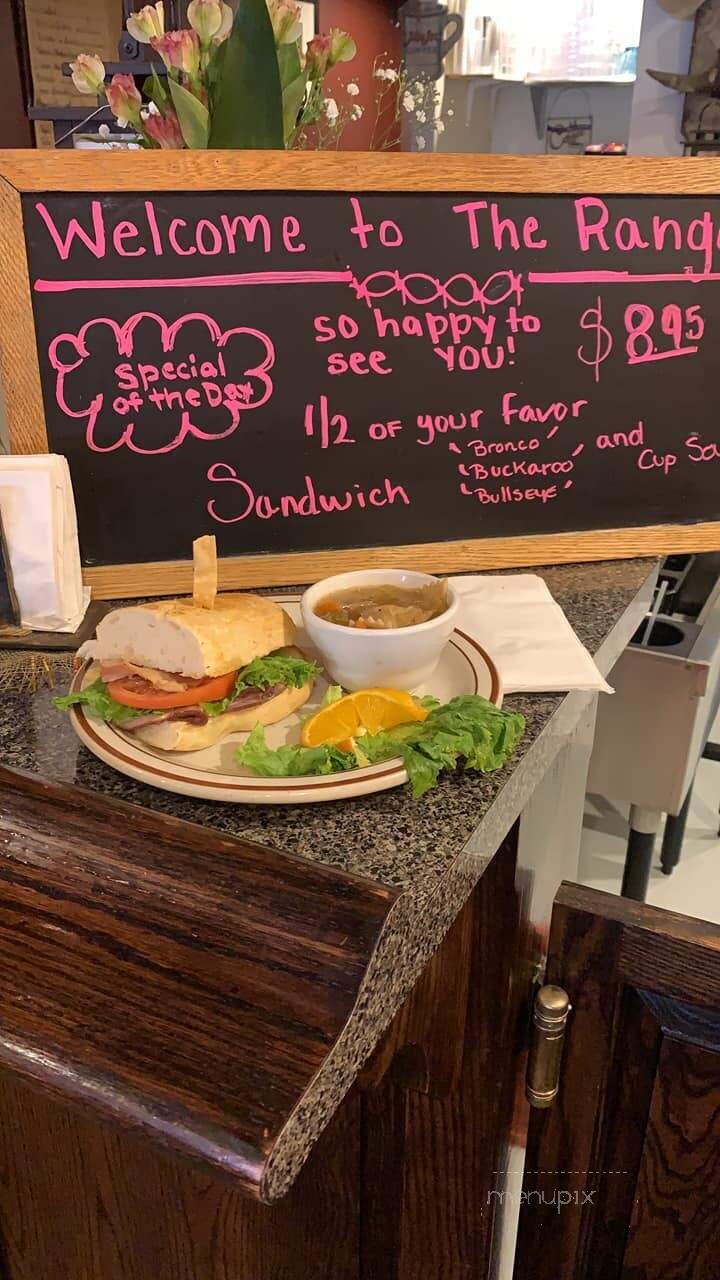 Welcome to The Rang
so happy to
see YOU!
$8.95
special
of the Day
1/2 OF your favor
Bronco
Buckaroo
Bullseye
and
Cup So
Sandwich
menupix